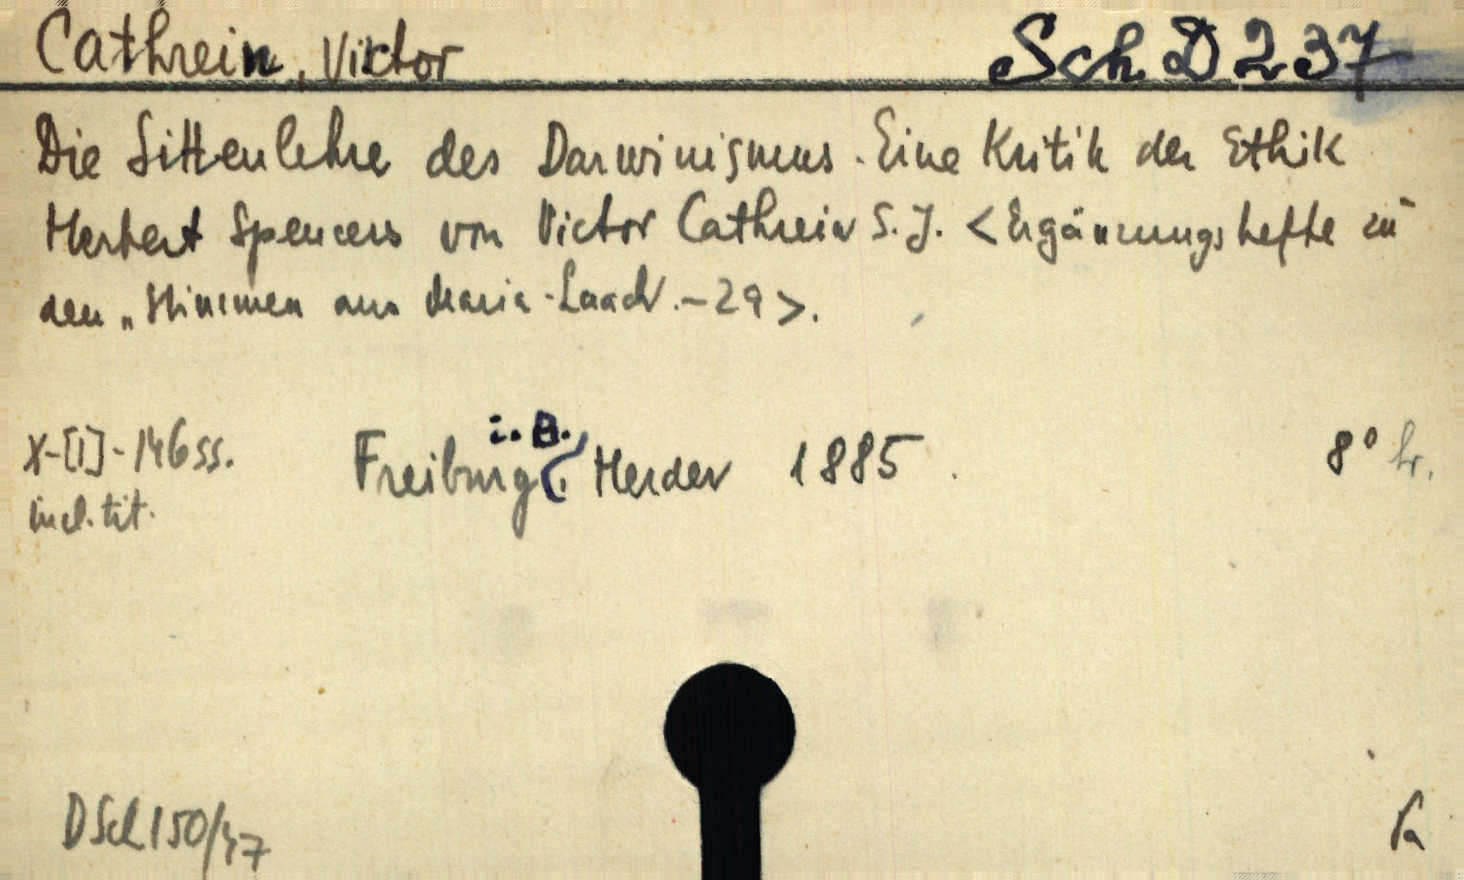 Cathrein, Viktor Sch D 237
Die Sittenlehre des Darwinismus. Eine Kritik der Ethik
Herbert Spencers von Victor Cathrein S. J. <Ergänzungshefte zu
den „Stimmen aus Maria-Laach. - 29>.
X-[1]-146 ss.
incl. tit.
Freiburg i. B., Herder 1885.
8° br.
DSch 150/47